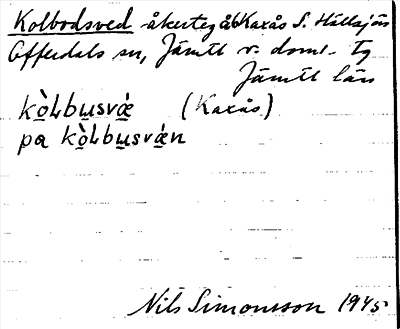 Kolbodsved åkerteg å Kaxås S. Hållsjön
Offerdals sn, Jämtl v. doms. tg
Jämtl län
kò̱Lbu̱svǽ̱ (Kaxås)
pa kò̱Lbu̱svǽ̱n
Nils Simonsson 1945